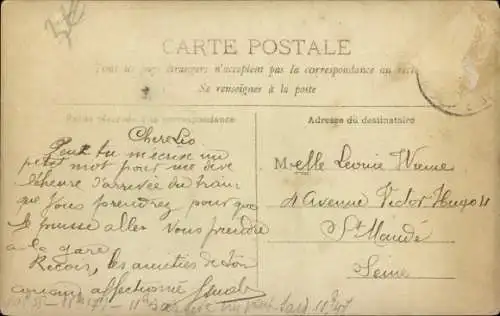 CARTE POSTALE
Tous les pays étrangers n'acceptent pas la correspondance au recto
Se renseigner à la poste
Partie réservée à la correspondance
Adresse du destinataire
Chere Léo
Peut tu m'écrire un
petit mot pour me dire
l'heure d'arrivée du train
que vous prendrez pour que
je puisse aller vous prendre
a la gare
Recois, les amitiés de ton
cousin affectionné
Melle Léonie
4 Avenue Victor Hugo 4
St Mandé
Seine